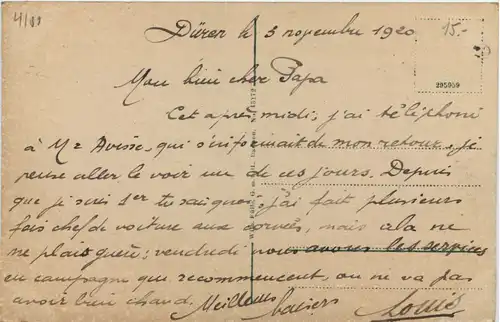 4/01
15.-
Düren le 3 novembre 1920
295959
Mon bien cher Papa
Cet après midi, j'ai téléphoné
à Mr Avisse, qui s'informait de mon retour, je
pense aller le voir un de ces jours. Depuis
que je suis 1er j'ai fait plusieurs
fois chef de voiture aux corvées, mais cela ne
me plaît guère; vendredi nous avons les services
en campagne qui recommencent, on ne va pas
avoir bien chaud. Meilleurs baisers
Louis